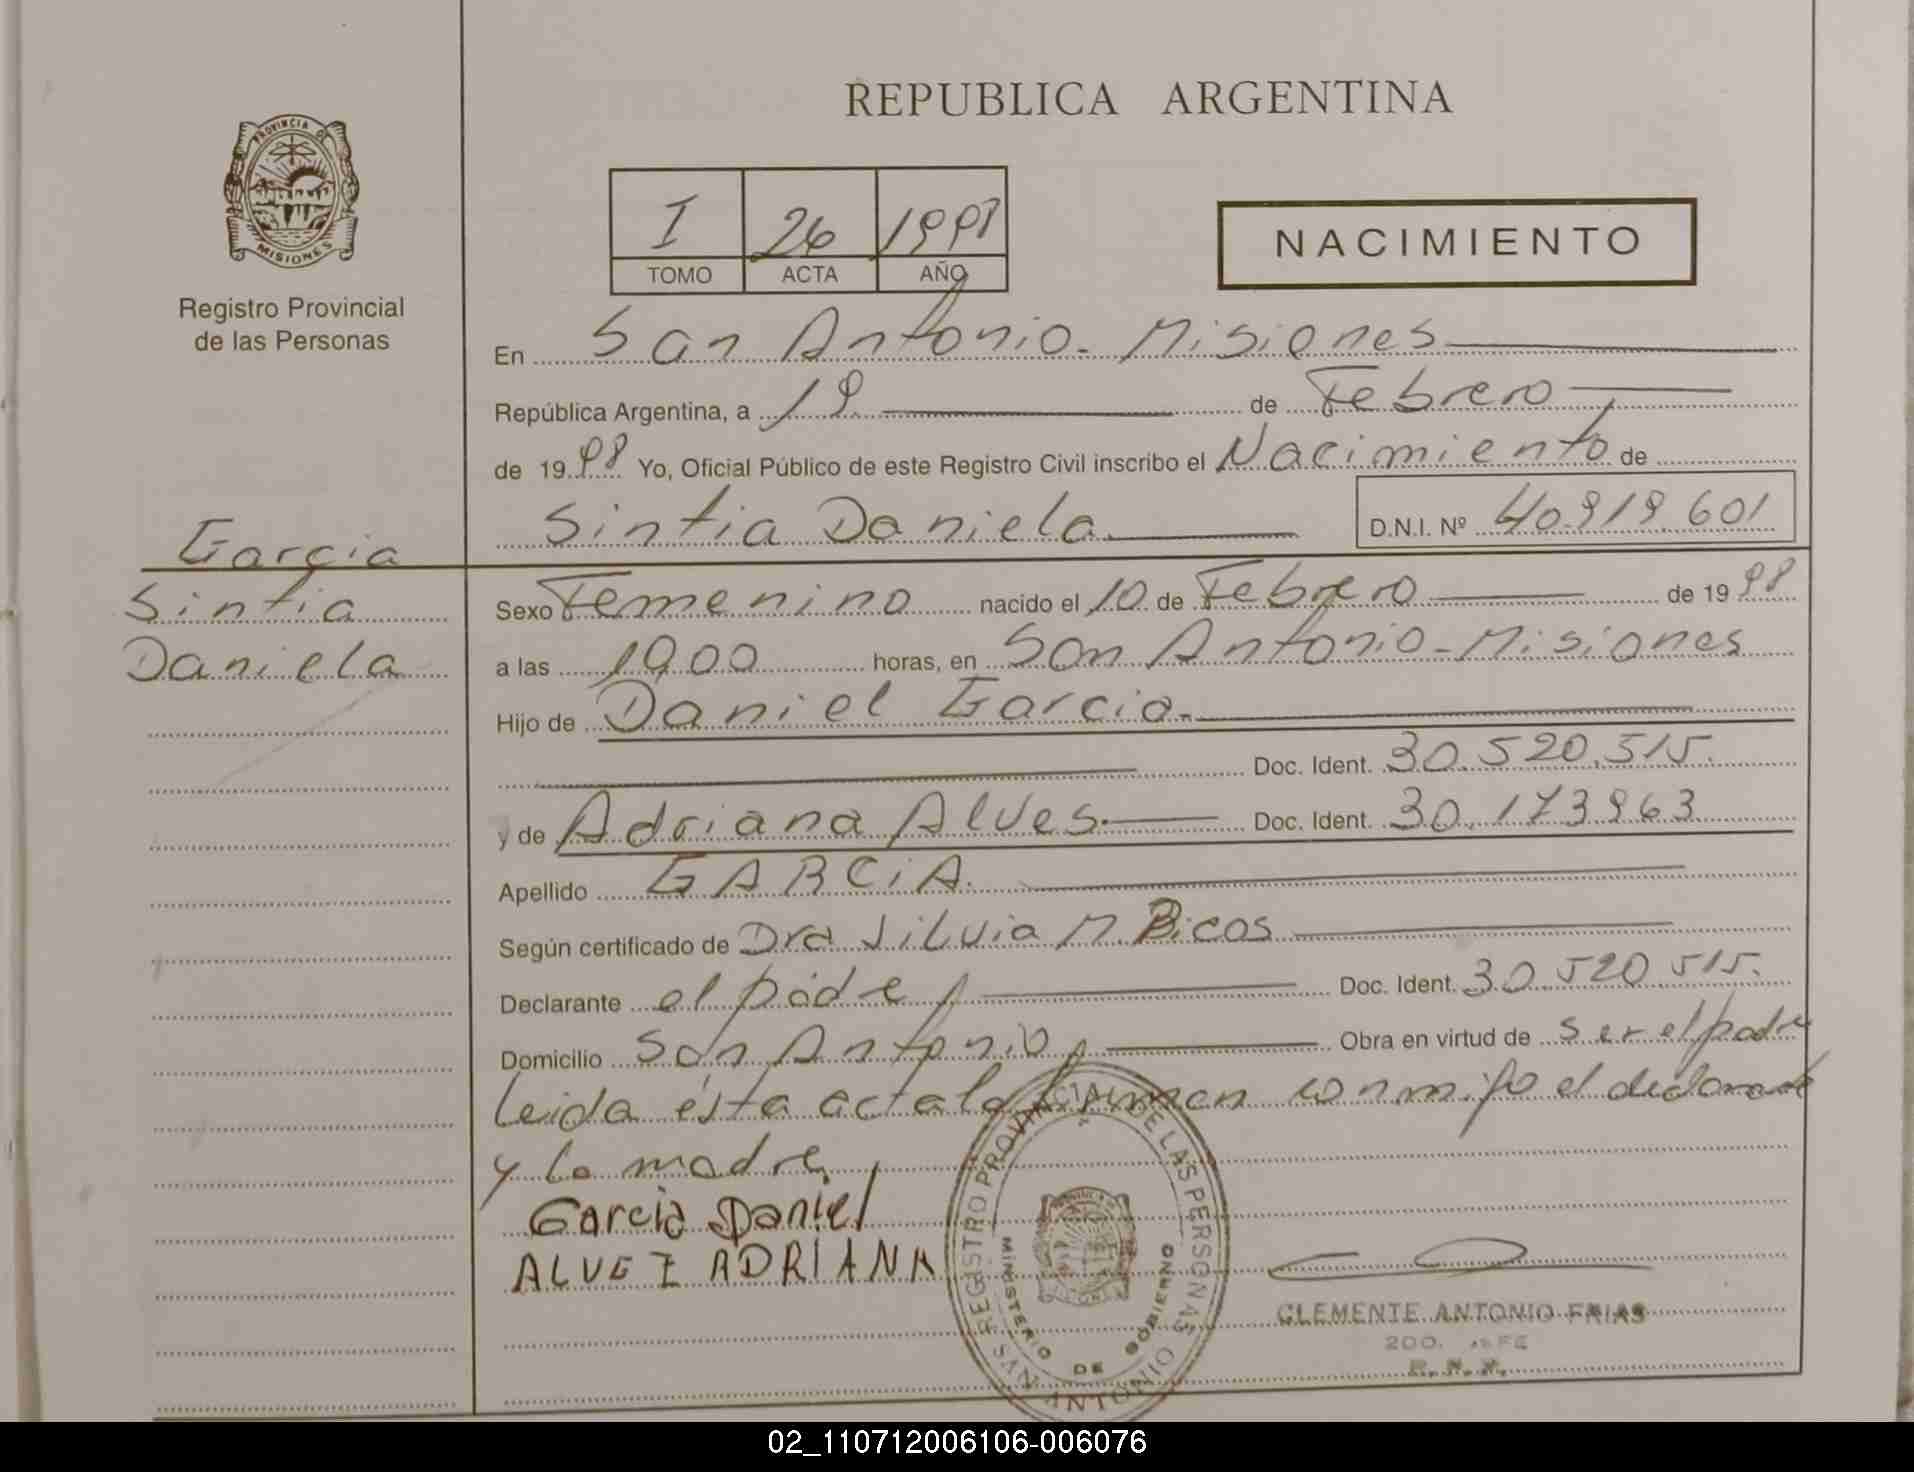 REPUBLICA ARGENTINA
PROVINCIA DE
MISIONES
Registro Provincial
de las Personas
I 26 1998
TOMO ACTA AÑO
NACIMIENTO
En San Antonio - Misiones
República Argentina, a 19 de Febrero
de 1998 Yo, Oficial Público de este Registro Civil inscribo el Nacimiento de
Sintia Daniela D.N.I. Nº 40.919.601
Garcia
Sintia
Daniela
Sexo Femenino nacido el 10 de Febrero de 1998
a las 19,00 horas, en San Antonio - Misiones
Hijo de Daniel Garcia
Doc. Ident. 30.520.515.
y de Adriana Alves Doc. Ident. 30.173963
Apellido GARCIA
Según certificado de Dra Silvia M. Bicos
Declarante el padre Doc. Ident. 30.520.515.
Domicilio San Antonio Obra en virtud de ser el padre
Leida ésta acta la firman conmigo el declarante
y la madre
Garcia Daniel
ALVEZ ADRIANA
REGISTRO PROVINCIAL DE LAS PERSONAS
MINISTERIO DE GOBIERNO
SAN ANTONIO
CLEMENTE ANTONIO FRIAS
02_110712006106-006076